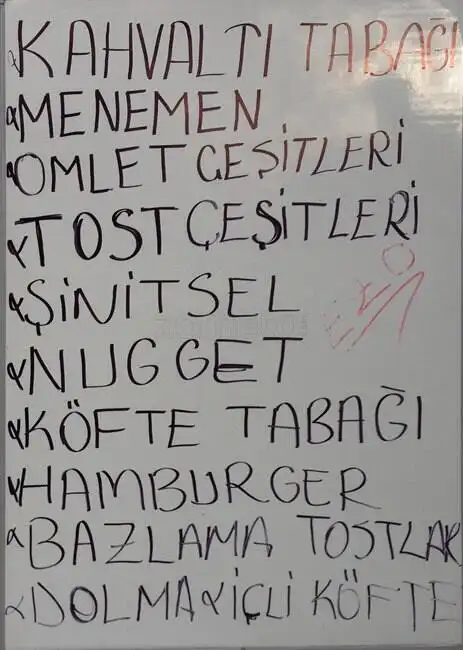 KAHVALTI TABAĞI
MENEMEN
OMLET ÇEŞİTLERİ
TOST ÇEŞİTLERİ
ŞİNİTSEL
NUGGET
KÖFTE TABAĞI
HAMBURGER
BAZLAMA TOSTLAR
DOLMA İÇLİ KÖFTE